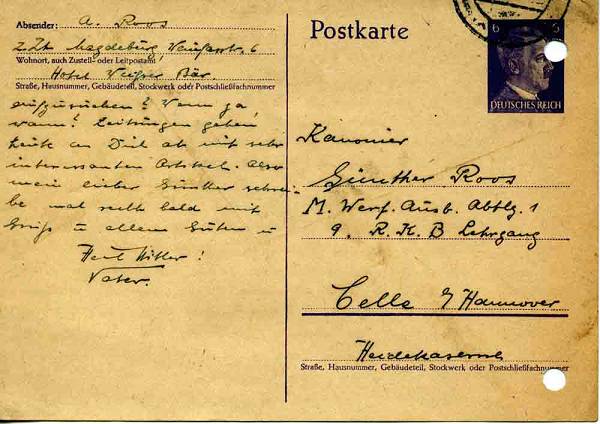 Absender: A. Roos
z.Zt. Magdeburg,                  6
Wohnort, auch Zustell- oder Leitpostamt
Hotel Weißer Bär.
Straße, Hausnummer, Gebäudeteil, Stockwerk oder Postschließfachnummer
auszurücken? Wenn ja,
wann? Zeitungen gehen
heute an Dich ab mit sehr
interessanten Artikel. Also
mein lieber Günther schrei-
be mal recht bald mit
Gruß = allem Guten u
Heil Hitler!
Vater.
Postkarte
6 6
DEUTSCHES REICH
Kanonier
Günther Roos
M. Werf. Ausb. Abtlg. 1
9. R.K.B Lehrgang
Celle / Hannover
Heidekaserne
Straße, Hausnummer, Gebäudeteil, Stockwerk oder Postschließfachnummer